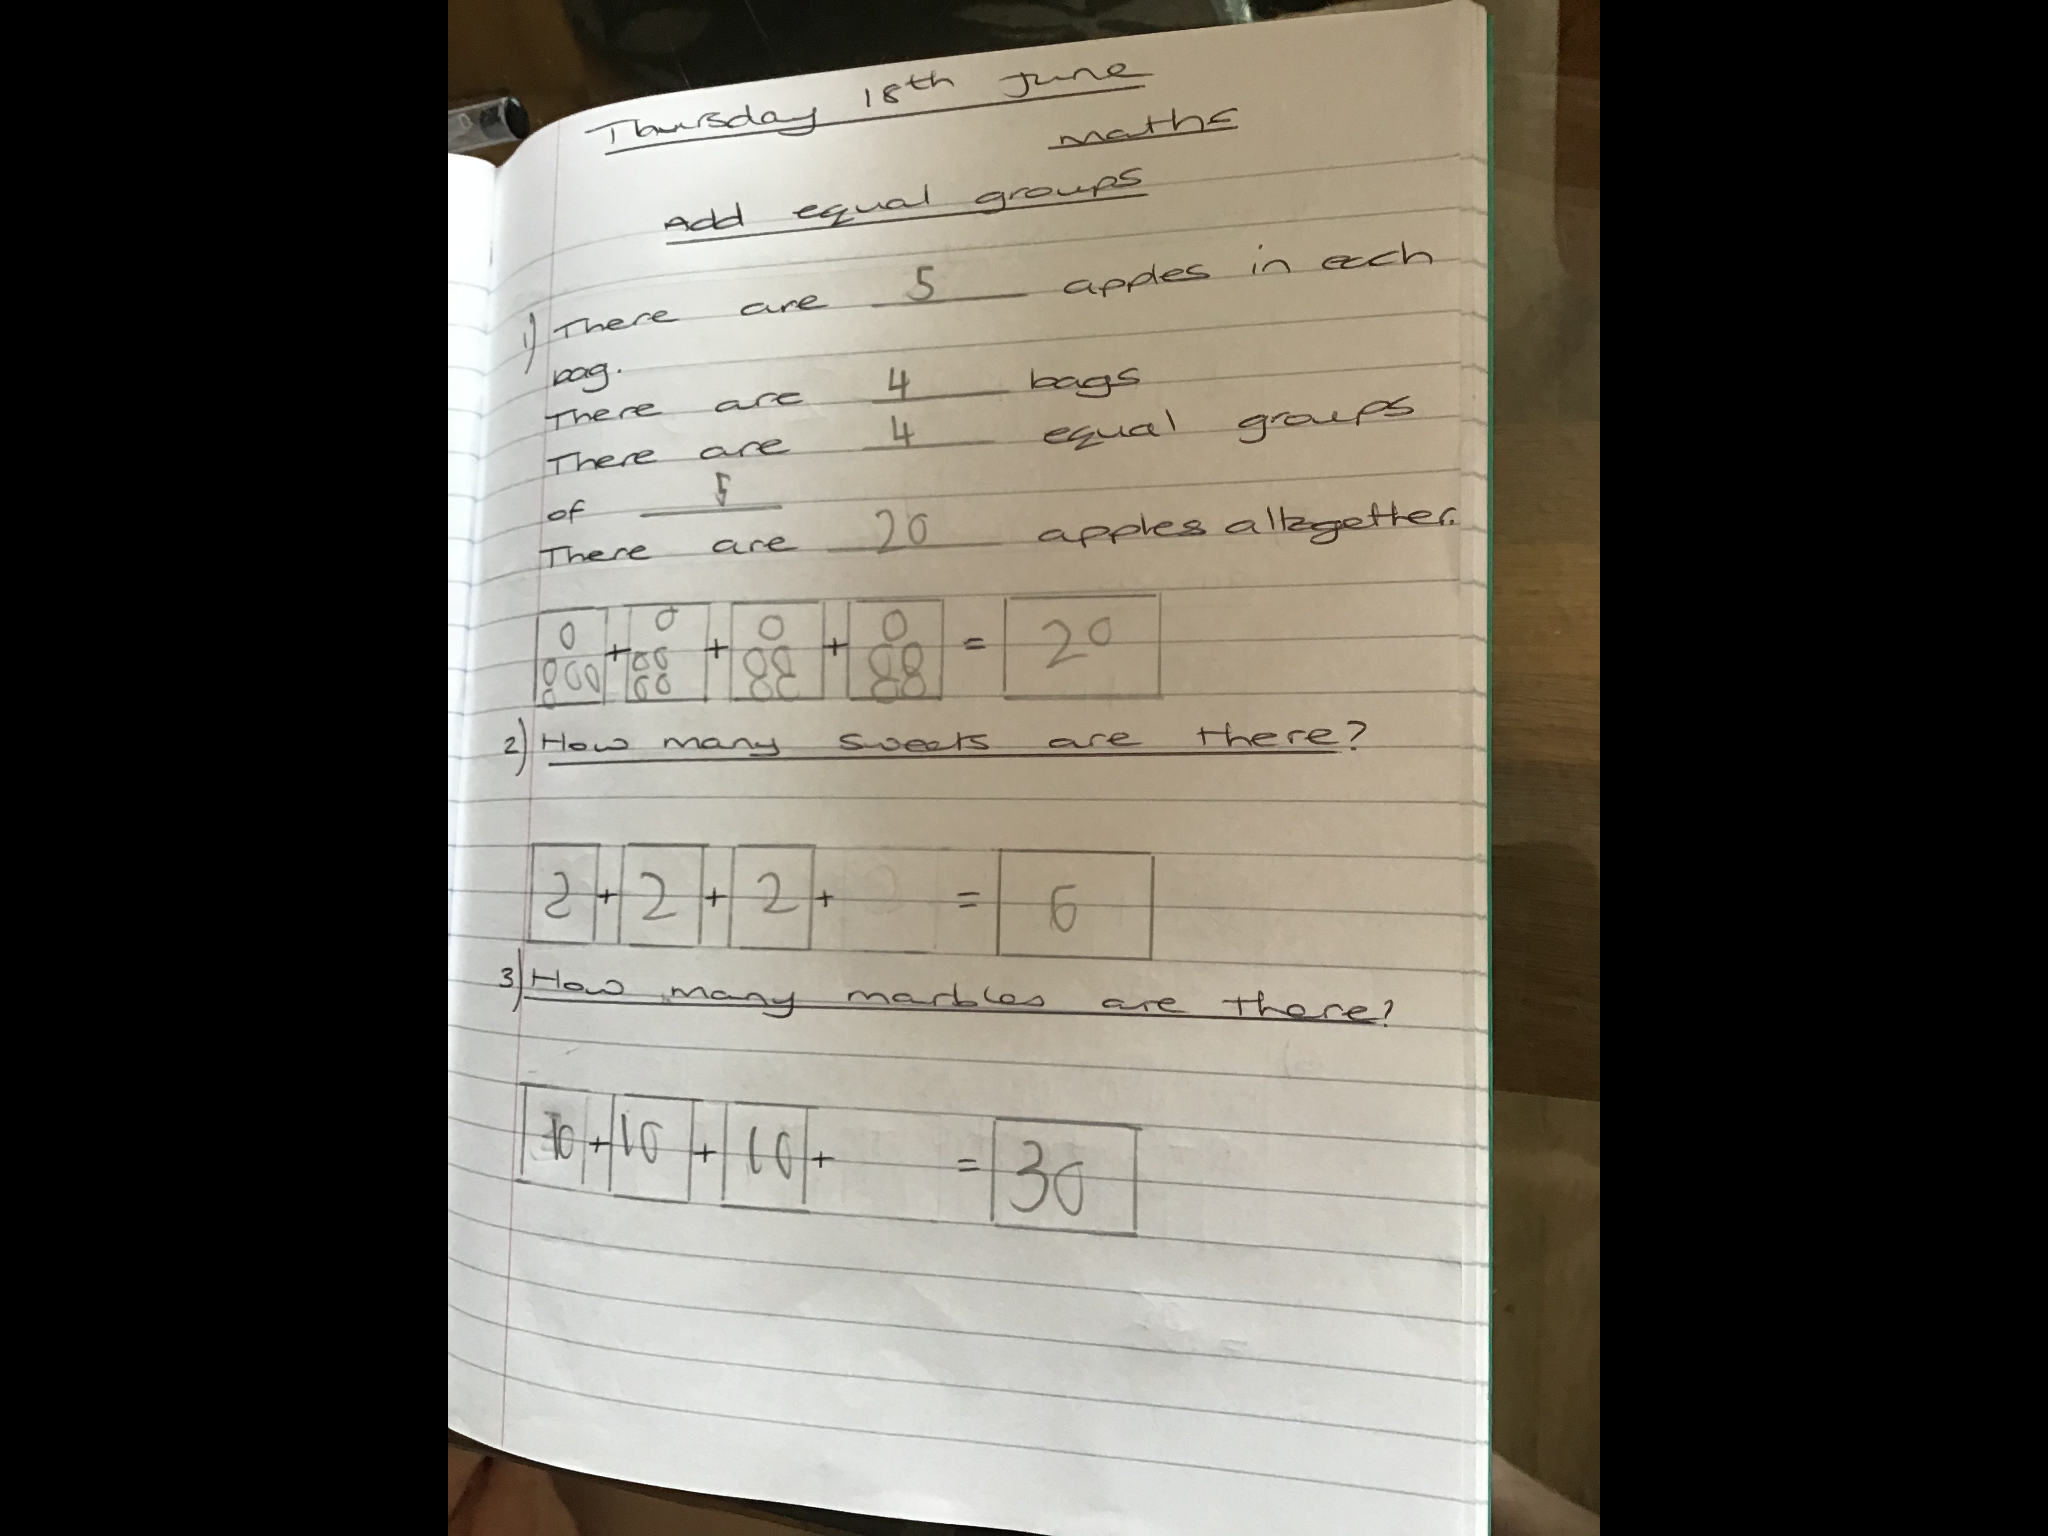 Thursday 18th June
maths
Add equal groups
1) There are 5 apples in each
bag.
There are 4 bags
There are 4 equal groups
of 5
There are 20 apples altogether.
+ + + = 20
2) How many sweets are there?
2 + 2 + 2 + = 6
3) How many marbles are there?
10 + 10 + 10 + = 30